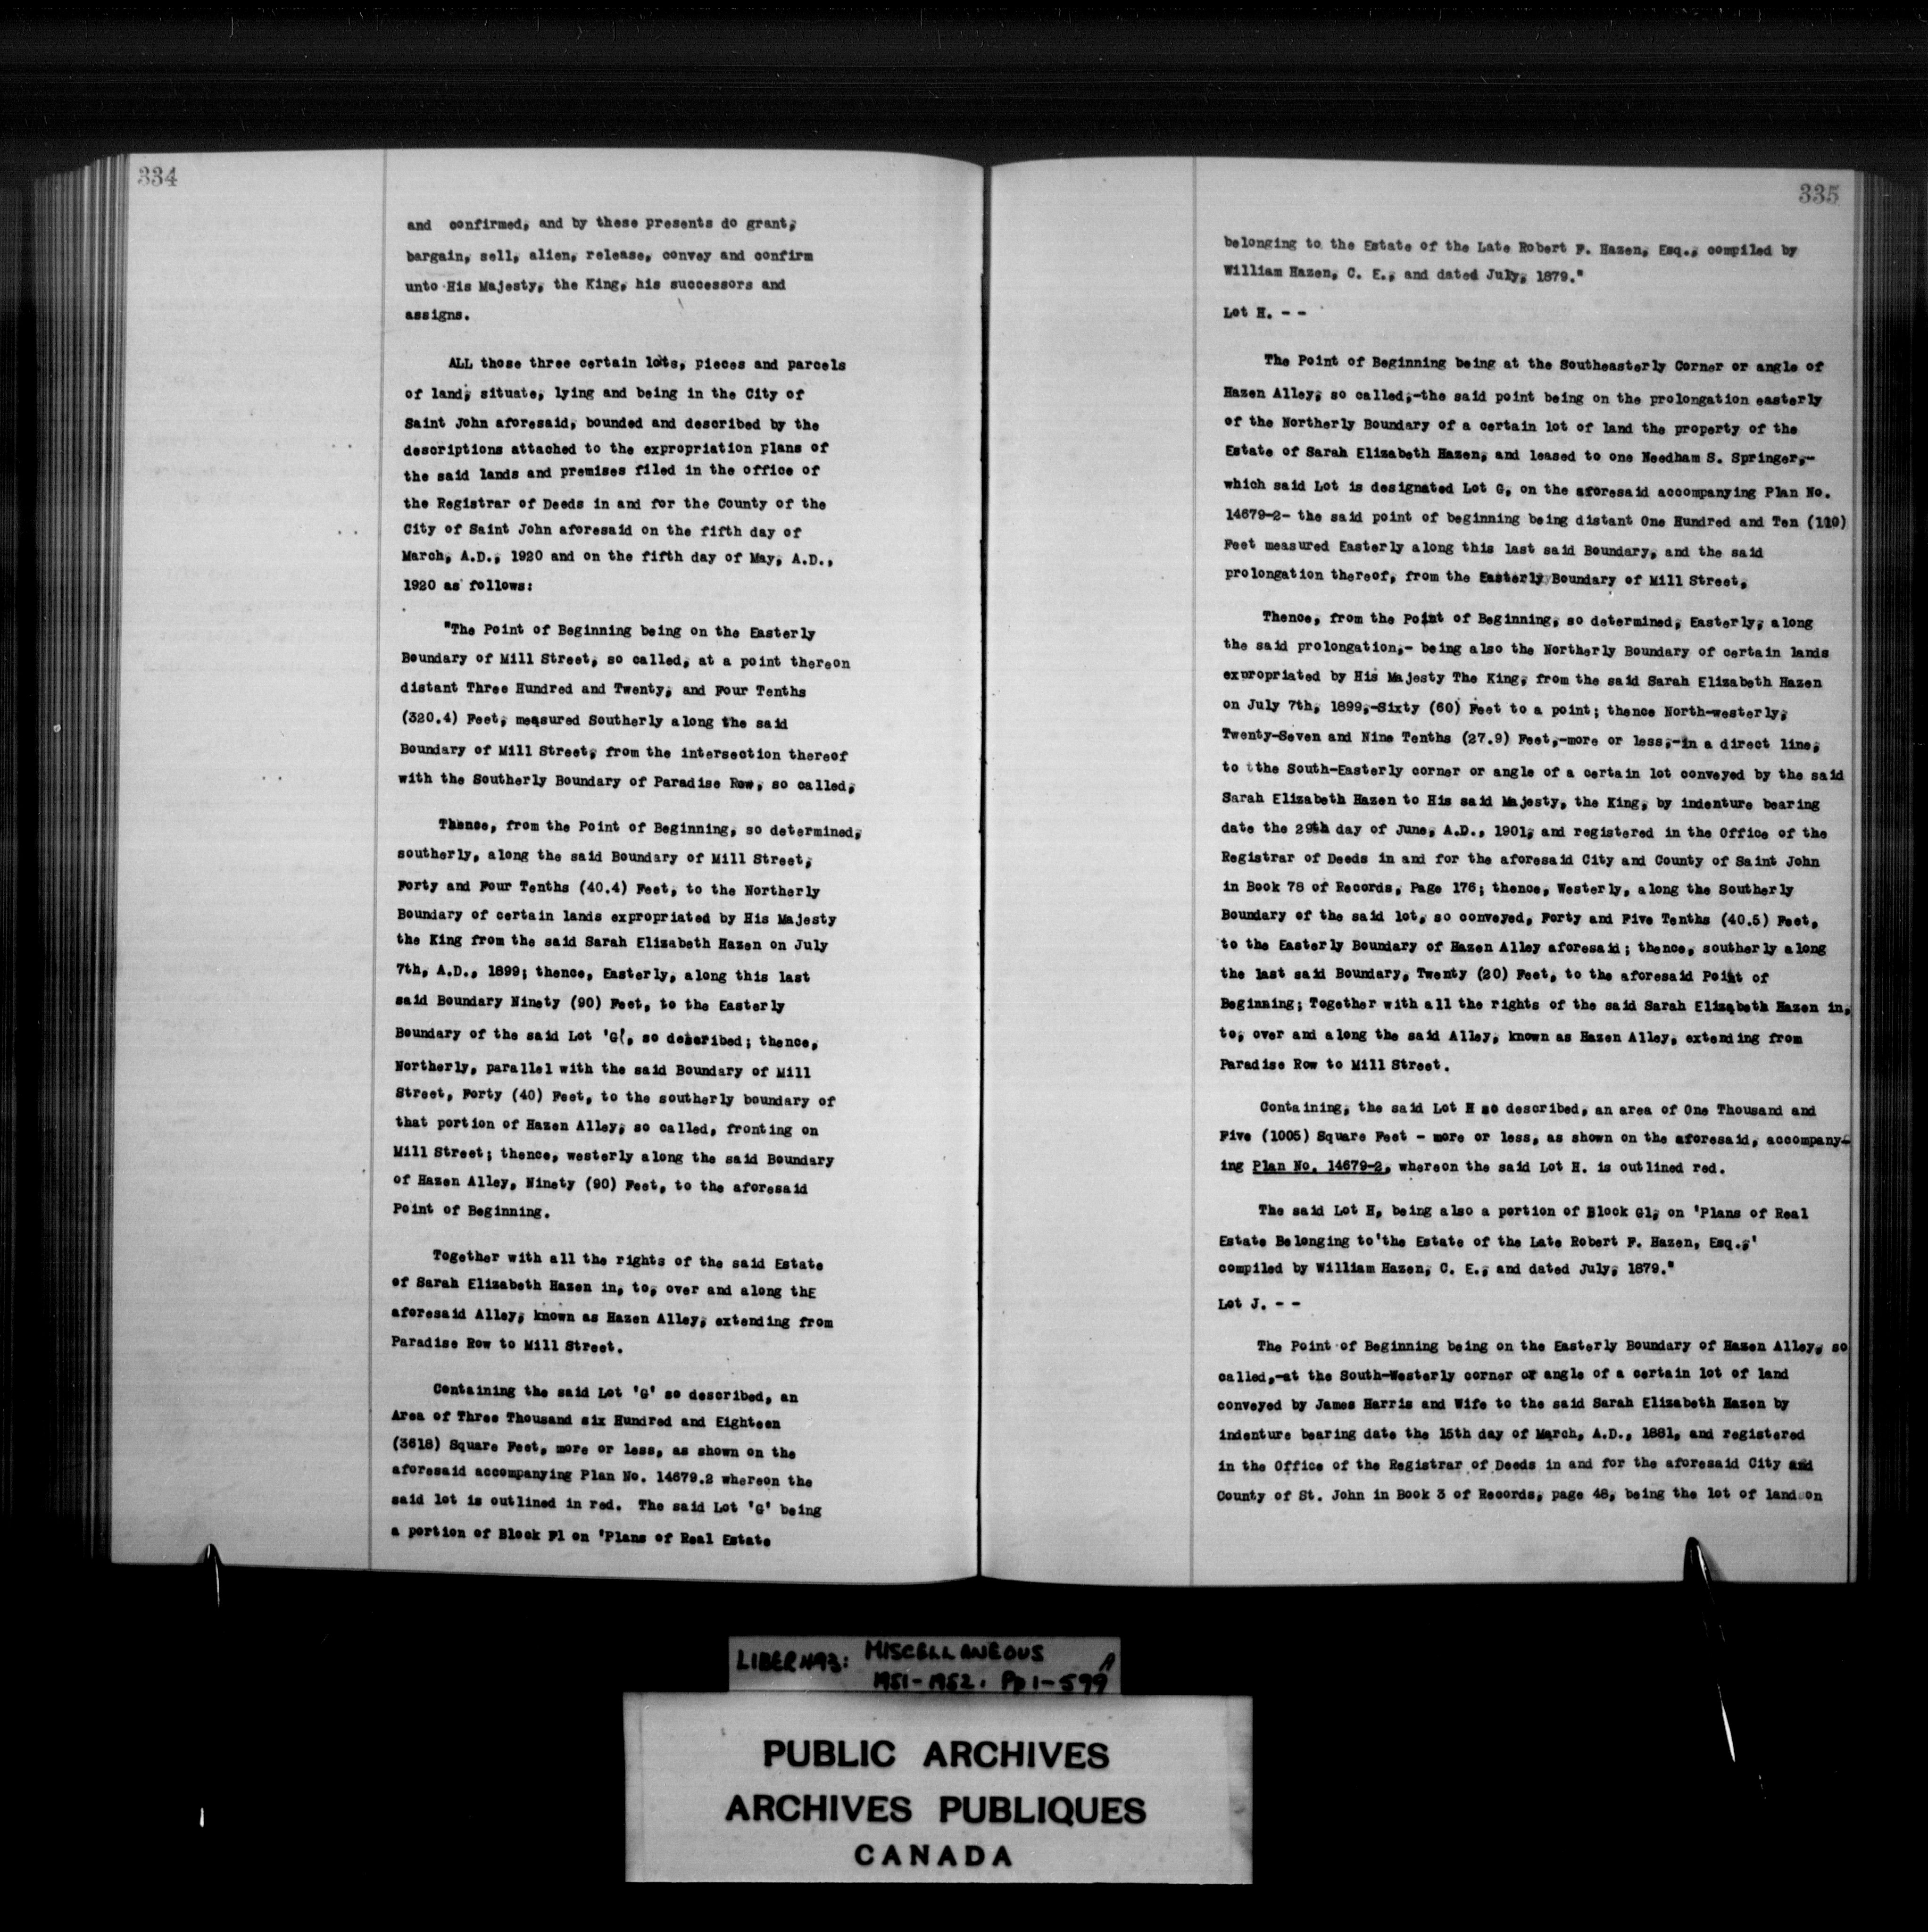 334
and confirmed, and by these presents do grant,
bargain, sell, alien, release, convey and confirm
unto His Majesty, the King, his successors and
assigns.
ALL those three certain lots, pieces and parcels
of land, situate, lying and being in the City of
Saint John aforesaid, bounded and described by the
descriptions attached to the expropriation plans of
the said lands and premises filed in the office of
the Registrar of Deeds in and for the County of the
City of Saint John aforesaid on the fifth day of
March, A.D., 1920 and on the fifth day of May, A.D.,
1920 as follows:
"The Point of Beginning being on the Easterly
Boundary of Mill Street, so called, at a point thereon
distant Three Hundred and Twenty, and Four Tenths
(320.4) Feet, measured Southerly along the said
Boundary of Mill Street, from the intersection thereof
with the Southerly Boundary of Paradise Row, so called,
Thence, from the Point of Beginning, so determined,
southerly, along the said Boundary of Mill Street,
Forty and Four Tenths (40.4) Feet, to the Northerly
Boundary of certain lands expropriated by His Majesty
the King from the said Sarah Elizabeth Hazen on July
7th, A.D., 1899; thence, Easterly, along this last
said Boundary Ninety (90) Feet, to the Easterly
Boundary of the said Lot 'G', so described; thence,
Northerly, parallel with the said Boundary of Mill
Street, Forty (40) Feet, to the southerly boundary of
that portion of Hazen Alley, so called, fronting on
Mill Street; thence, westerly along the said Boundary
of Hazen Alley, Ninety (90) Feet, to the aforesaid
Point of Beginning.
Together with all the rights of the said Estate
of Sarah Elizabeth Hazen in, to, over and along thE
aforesaid Alley, known as Hazen Alley, extending from
Paradise Row to Mill Street.
Containing the said Lot 'G' so described, an
Area of Three Thousand six Hundred and Eighteen
(3618) Square Feet, more or less, as shown on the
aforesaid accompanying Plan No. 14679.2 whereon the
said lot is outlined in red. The said Lot 'G' being
a portion of Block F1 on 'Plans of Real Estate
335
belonging to the Estate of the Late Robert F. Hazen, Esq., compiled by
William Hazen, C. E., and dated July, 1879."
Lot H. - -
The Point of Beginning being at the Southeasterly Corner or angle of
Hazen Alley, so called,-the said point being on the prolongation easterly
of the Northerly Boundary of a certain lot of land the property of the
Estate of Sarah Elizabeth Hazen, and leased to one Needham S. Springer,-
which said Lot is designated Lot G, on the aforesaid accompanying Plan No.
14679-2- the said point of beginning being distant One Hundred and Ten (110)
Feet measured Easterly along this last said Boundary, and the said
prolongation thereof, from the Easterly Boundary of Mill Street,
Thence, from the Point of Beginning, so determined, Easterly, along
the said prolongation,- being also the Northerly Boundary of certain lands
expropriated by His Majesty The King, from the said Sarah Elizabeth Hazen
on July 7th, 1899,-Sixty (60) Feet to a point; thence North-westerly,
Twenty-Seven and Nine Tenths (27.9) Feet,-more or less,-in a direct line,
to tthe South-Easterly corner or angle of a certain lot conveyed by the said
Sarah Elizabeth Hazen to His said Majesty, the King, by indenture bearing
date the 29th day of June, A.D., 1901, and registered in the Office of the
Registrar of Deeds in and for the aforesaid City and County of Saint John
in Book 78 of Records, Page 176; thence, Westerly, along the Southerly
Boundary of the said lot, so conveyed, Forty and Five Tenths (40.5) Feet,
to the Easterly Boundary of Hazen Alley aforesaid; thence, southerly along
the last said Boundary, Twenty (20) Feet, to the aforesaid Point of
Beginning; Together with all the rights of the said Sarah Elizabeth Hazen in,
to, over and along the said Alley, known as Hazen Alley, extending from
Paradise Row to Mill Street.
Containing, the said Lot H so described, an area of One Thousand and
Five (1005) Square Feet - more or less, as shown on the aforesaid, accompany-
ing Plan No. 14679-2, whereon the said Lot H. is outlined red.
The said Lot H, being also a portion of Block G1, on 'Plans of Real
Estate Belonging to'the Estate of the Late Robert F. Hazen, Esq.,'
compiled by William Hazen, C. E., and dated July, 1879."
Lot J. - -
The Point of Beginning being on the Easterly Boundary of Hazen Alley, so
called,-at the South-Westerly corner or angle of a certain lot of land
conveyed by James Harris and Wife to the said Sarah Elizabeth Hazen by
indenture bearing date the 15th day of March, A.D., 1881, and registered
in the Office of the Registrar of Deeds in and for the aforesaid City and
County of St. John in Book 3 of Records, page 48, being the lot of land on
LIBER 493: MISCELLANEOUS
1951-1952. Pp 1-599A
PUBLIC ARCHIVES
ARCHIVES PUBLIQUES
CANADA